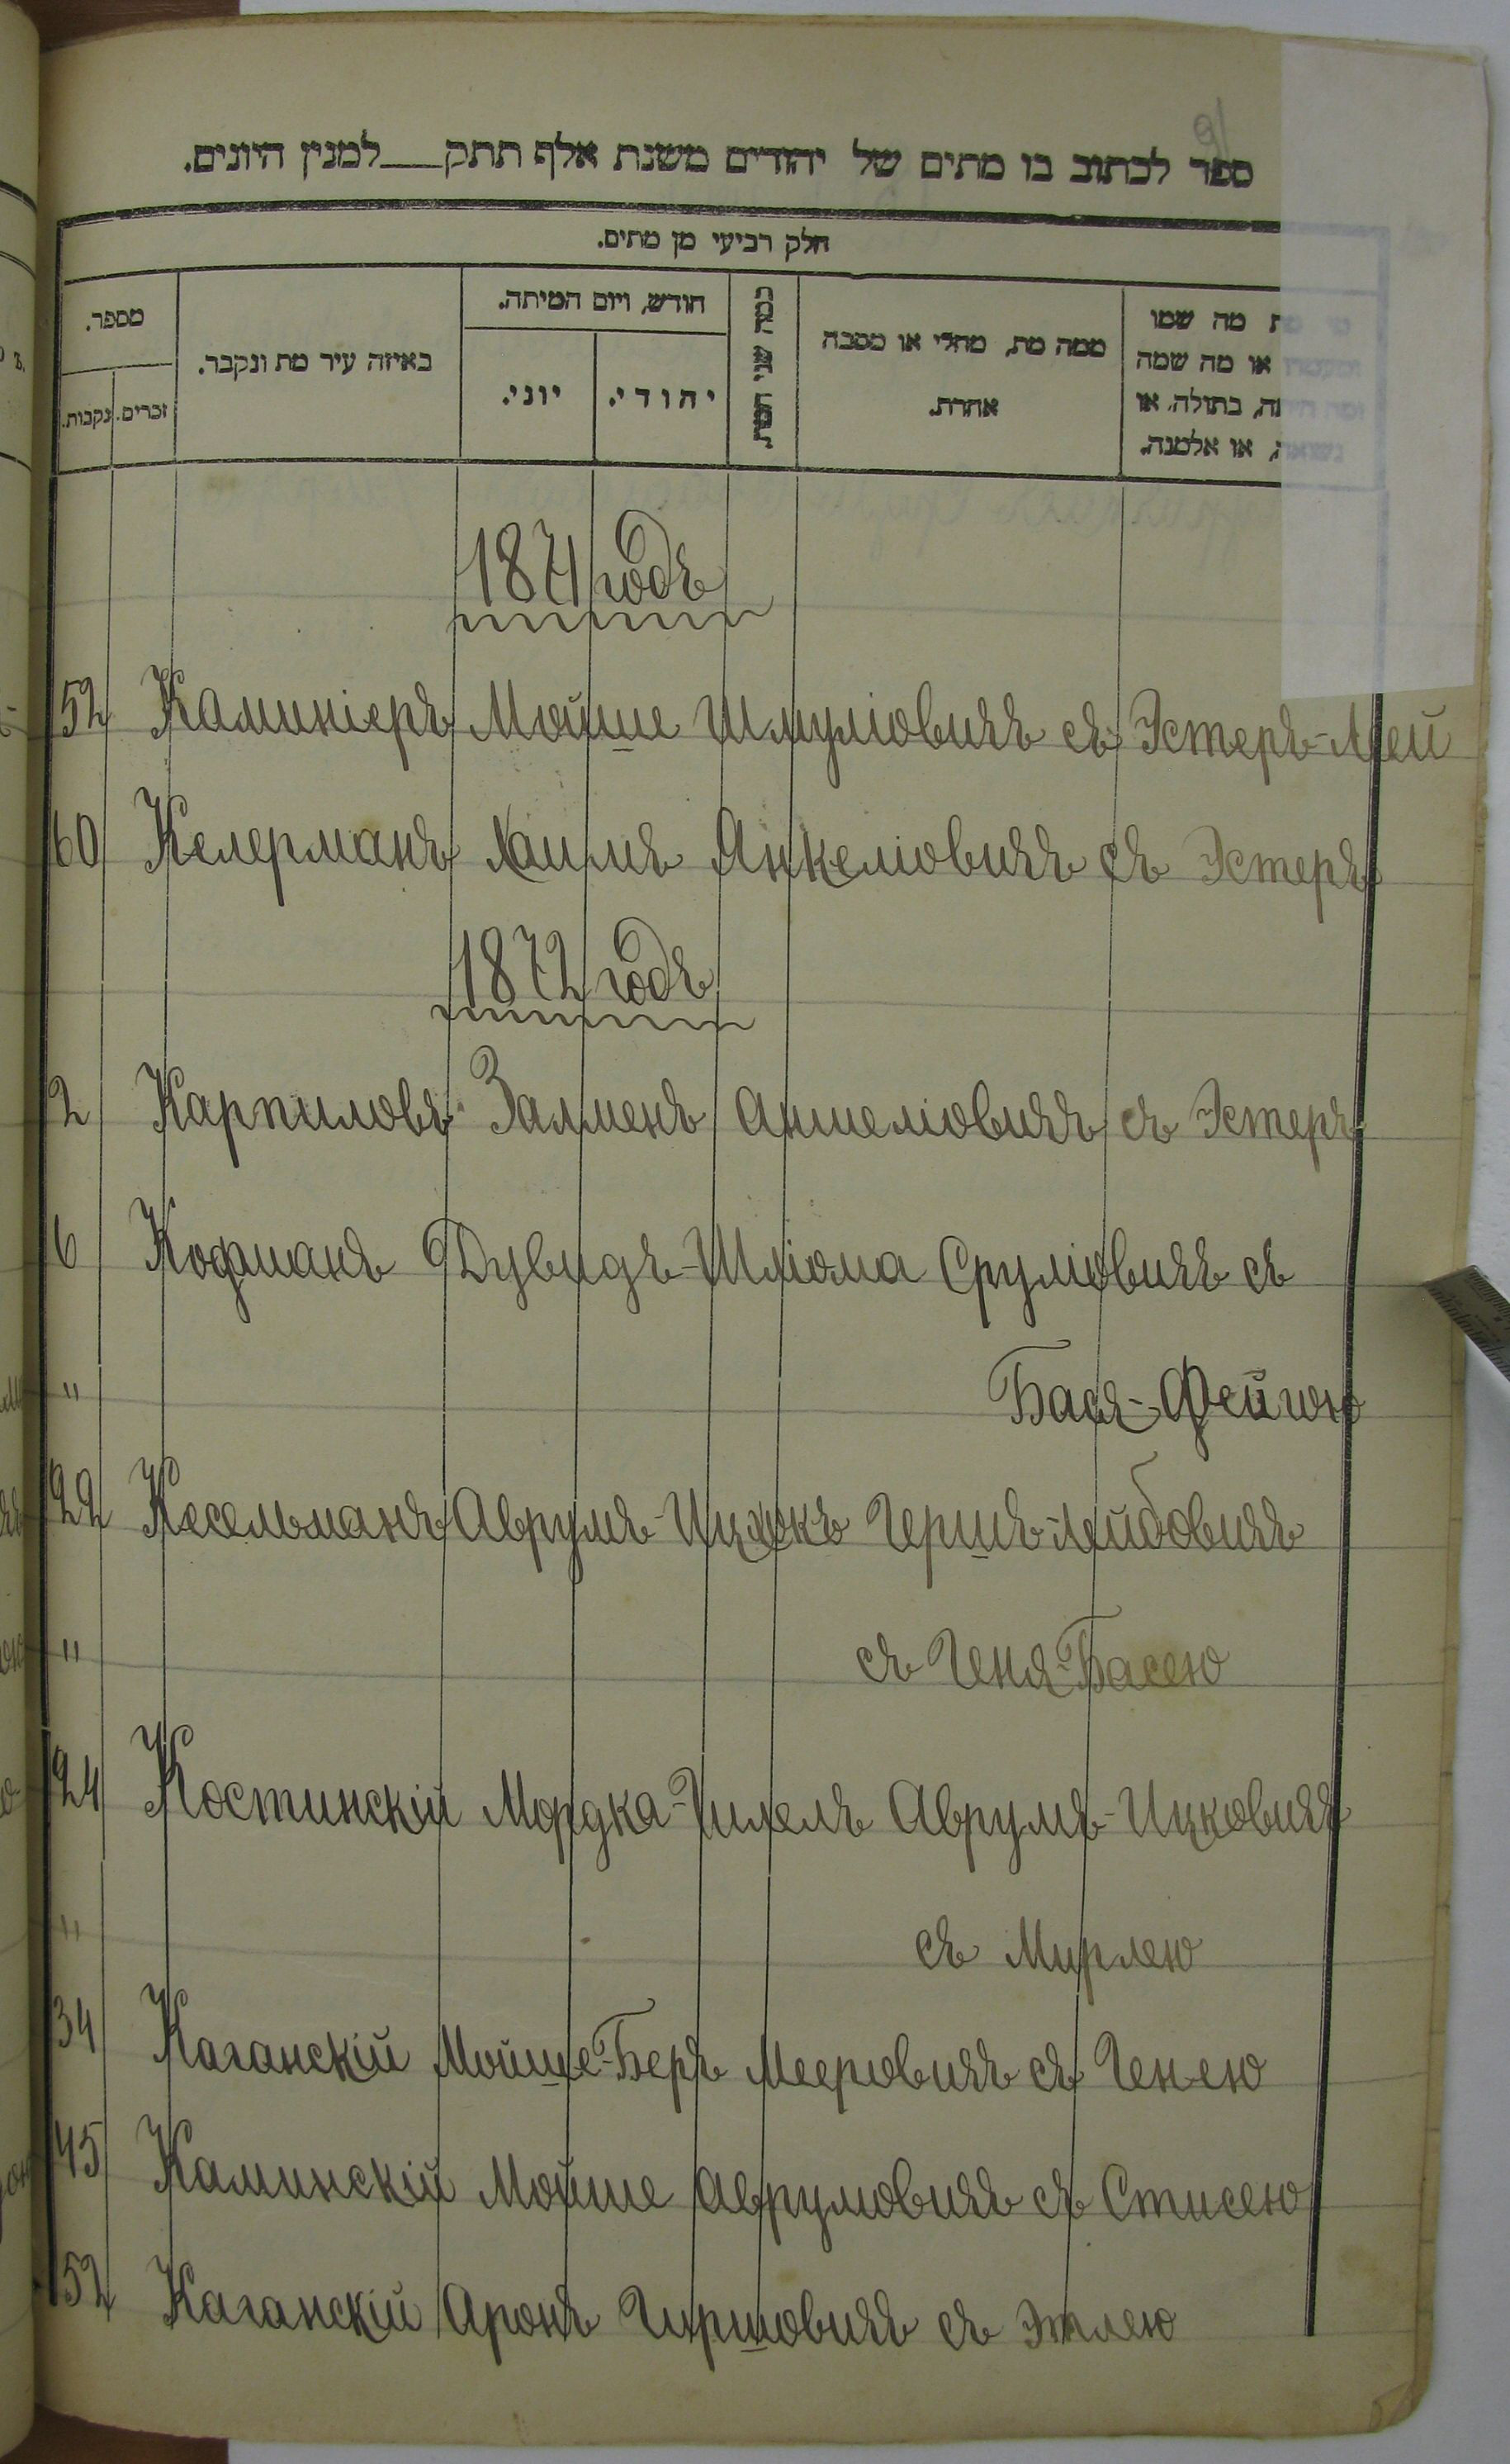 ספר לכתוב בו מתים של יהודים משנת אלף תתק למנין היונים.
חלק רביעי מן מתים.
מספר.
נקבות. זכרים.
באיזה עיר מת ונקבר.
חודש, ויום המיתה.
יוני. יהודי.
כמה שני המת.
ממה מת, מחלי או מסבה
אחרת.
מי מת מה שמו
ומעמדו או מה שמה
ומה היתה, בתולה, או
נשואה, או אלמנה.
1871 годъ
52 Каминіеръ Мойше Шмуліовичъ съ Эстеръ-Леей
60 Келерманъ Хаимъ Анкеліовичъ съ Эстеръ
1872 годъ
2 Карпиловъ Залменъ Аншеліовичъ съ Эстеръ
6 Кофманъ Дувидъ-Шліома Сруліовичъ съ
" Бася-Фейгою
22 Кесельманъ Аврумъ-Ицхокъ Гершъ-Лейбовичъ
" съ Геня-Басею
24 Костинскій Мордка-Гилель Аврумъ-Ицковичъ
" съ Мирлею
34 Каганскій Мойше-Беръ Мееровичъ съ Генею
45 Каминскій Мойше Аврумовичъ съ Стисею
52 Каганскій Аронъ Гиршовичъ съ Этлею